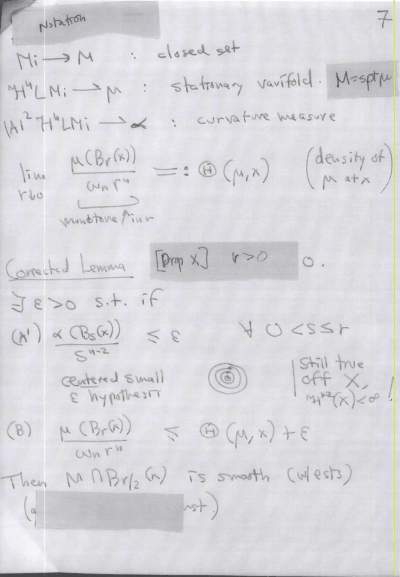 Notation
7
Mi → M : closed set
H^n L Mi → μ : stationary varifold. M = spt μ
|A|^2 H^n L Mi → α : curvature measure
lim r↓0 μ(Br(x)) / ωn r^n =: Θ(μ, x) (density of μ at x)
monotone in r
Corrected Lemma [Drop X] r > 0 0.
∃ ε > 0 s.t. if
(A') α(Bs(x)) / s^{n-2} ≤ ε ∀ 0 < s ≤ r
centered small ε hypothesis
Still true off X, H^{n-2}(X) < ∞ !
(B) μ(Br(x)) / ωn r^n ≤ Θ(μ, x) + ε
Then M ∩ Br/2(x) is smooth (w/ests)